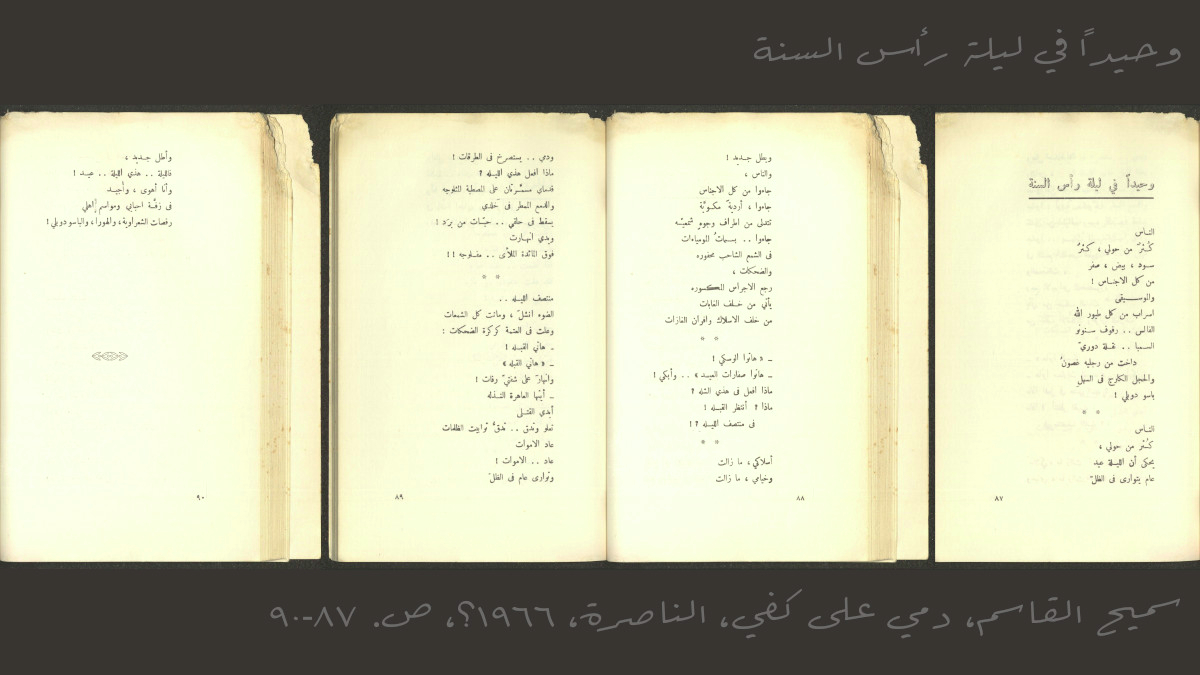 وحيداً في ليلة رأس السنة
وحيداً في ليلة رأس السنة
الناس
كُثرٌ من حولي ، كثرٌ
سود ، بيض ، صفر
من كل الاجناس !
والموسيقى
اسراب من كل طيور الله
الفالس .. رفوف سنونو
السمبا .. نقلة دوريّ
داخت من رجليه غصونُ
والحجل الكارج فى السهل
باسو دوبلي !
* *
الناس
كُثر من حولي ،
يحكى أن الليلة عيد
عام يتوارى فى الظلّ
٨٧
ويطل جديد !
والناس ،
جاءوا من كل الاجناس
جاءوا ، أرديةً مكويّة
تتدلى من اطراف وجوهٍ شمعيّه
جاءوا .. بسمات المومياءات
فى الشمع الشاحب محفوره
والضحكات ،
رجع الاجراس المكسوره
يأتي من خلف الغابات
من خلف الاسلاك وافران الغازات
* *
ـ « هاتوا الوسكي !
ـ هاتوا صفارات العيد » .. وأبكي !
ماذا أفعل فى هذي الليله ؟
ماذا ؟ أنتظر القبله !
فى منتصف الليله ؟!
* *
أسلاكي ، ما زالت
وخيامي ، ما زالت
٨٨
ودمي .. يستصرخ فى الطرقات !
ماذا افعل هذي الليله ؟
قدماي مسمّرتان على المصطبة المثلوجه
والدمع المطر فى خلدي
يسقط فى حلقي .. حبّات من برَد !
ويدي انهارت
فوق المائدة الملأى .. مفلوجه !!
* *
منتصف الليله ..
الضوء انشلّ ، وماتت كل الشمعات
وعلت فى العتمة كركرة الضحكات :
ـ هاتي القبله !
ـ « هاتي القبله »
وانهارَ على شفتيّ رفات !
ـ أيتها العاهرة النذله
أيدي القتلى
تعلو وتدق .. تدقّ توابيت الظلمات
عاد الاموات
عاد .. الاموات !
وتوارى عام فى الظلّ
٨٩
وأطل جديد ،
فالليلة .. هذي الليلة .. عيد !
وأنا أهوى ، وأجيد
فى زفّة احبابي ومواسم أهلي
رقصات الشعراوية ، والهورا ، والباسو دوبلي !
٩٠
سميح القاسم، دمي على كفي، الناصرة، ١٩٦٦؟، ص. ٨٧-٩٠